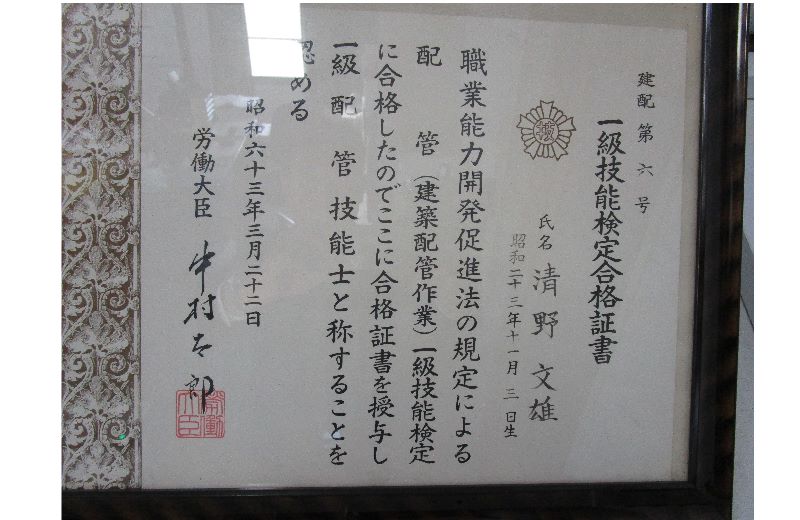 建配第六号
一級技能検定合格証書
氏名 清野文雄
昭和二十三年十一月三日生
職業能力開発促進法の規定による
配管(建築配管作業)一級技能検定
に合格したのでここに合格証書を授与し
一級配管技能士と称することを
認める
昭和六十三年三月二十二日
労働大臣 中村太郎
労働大臣